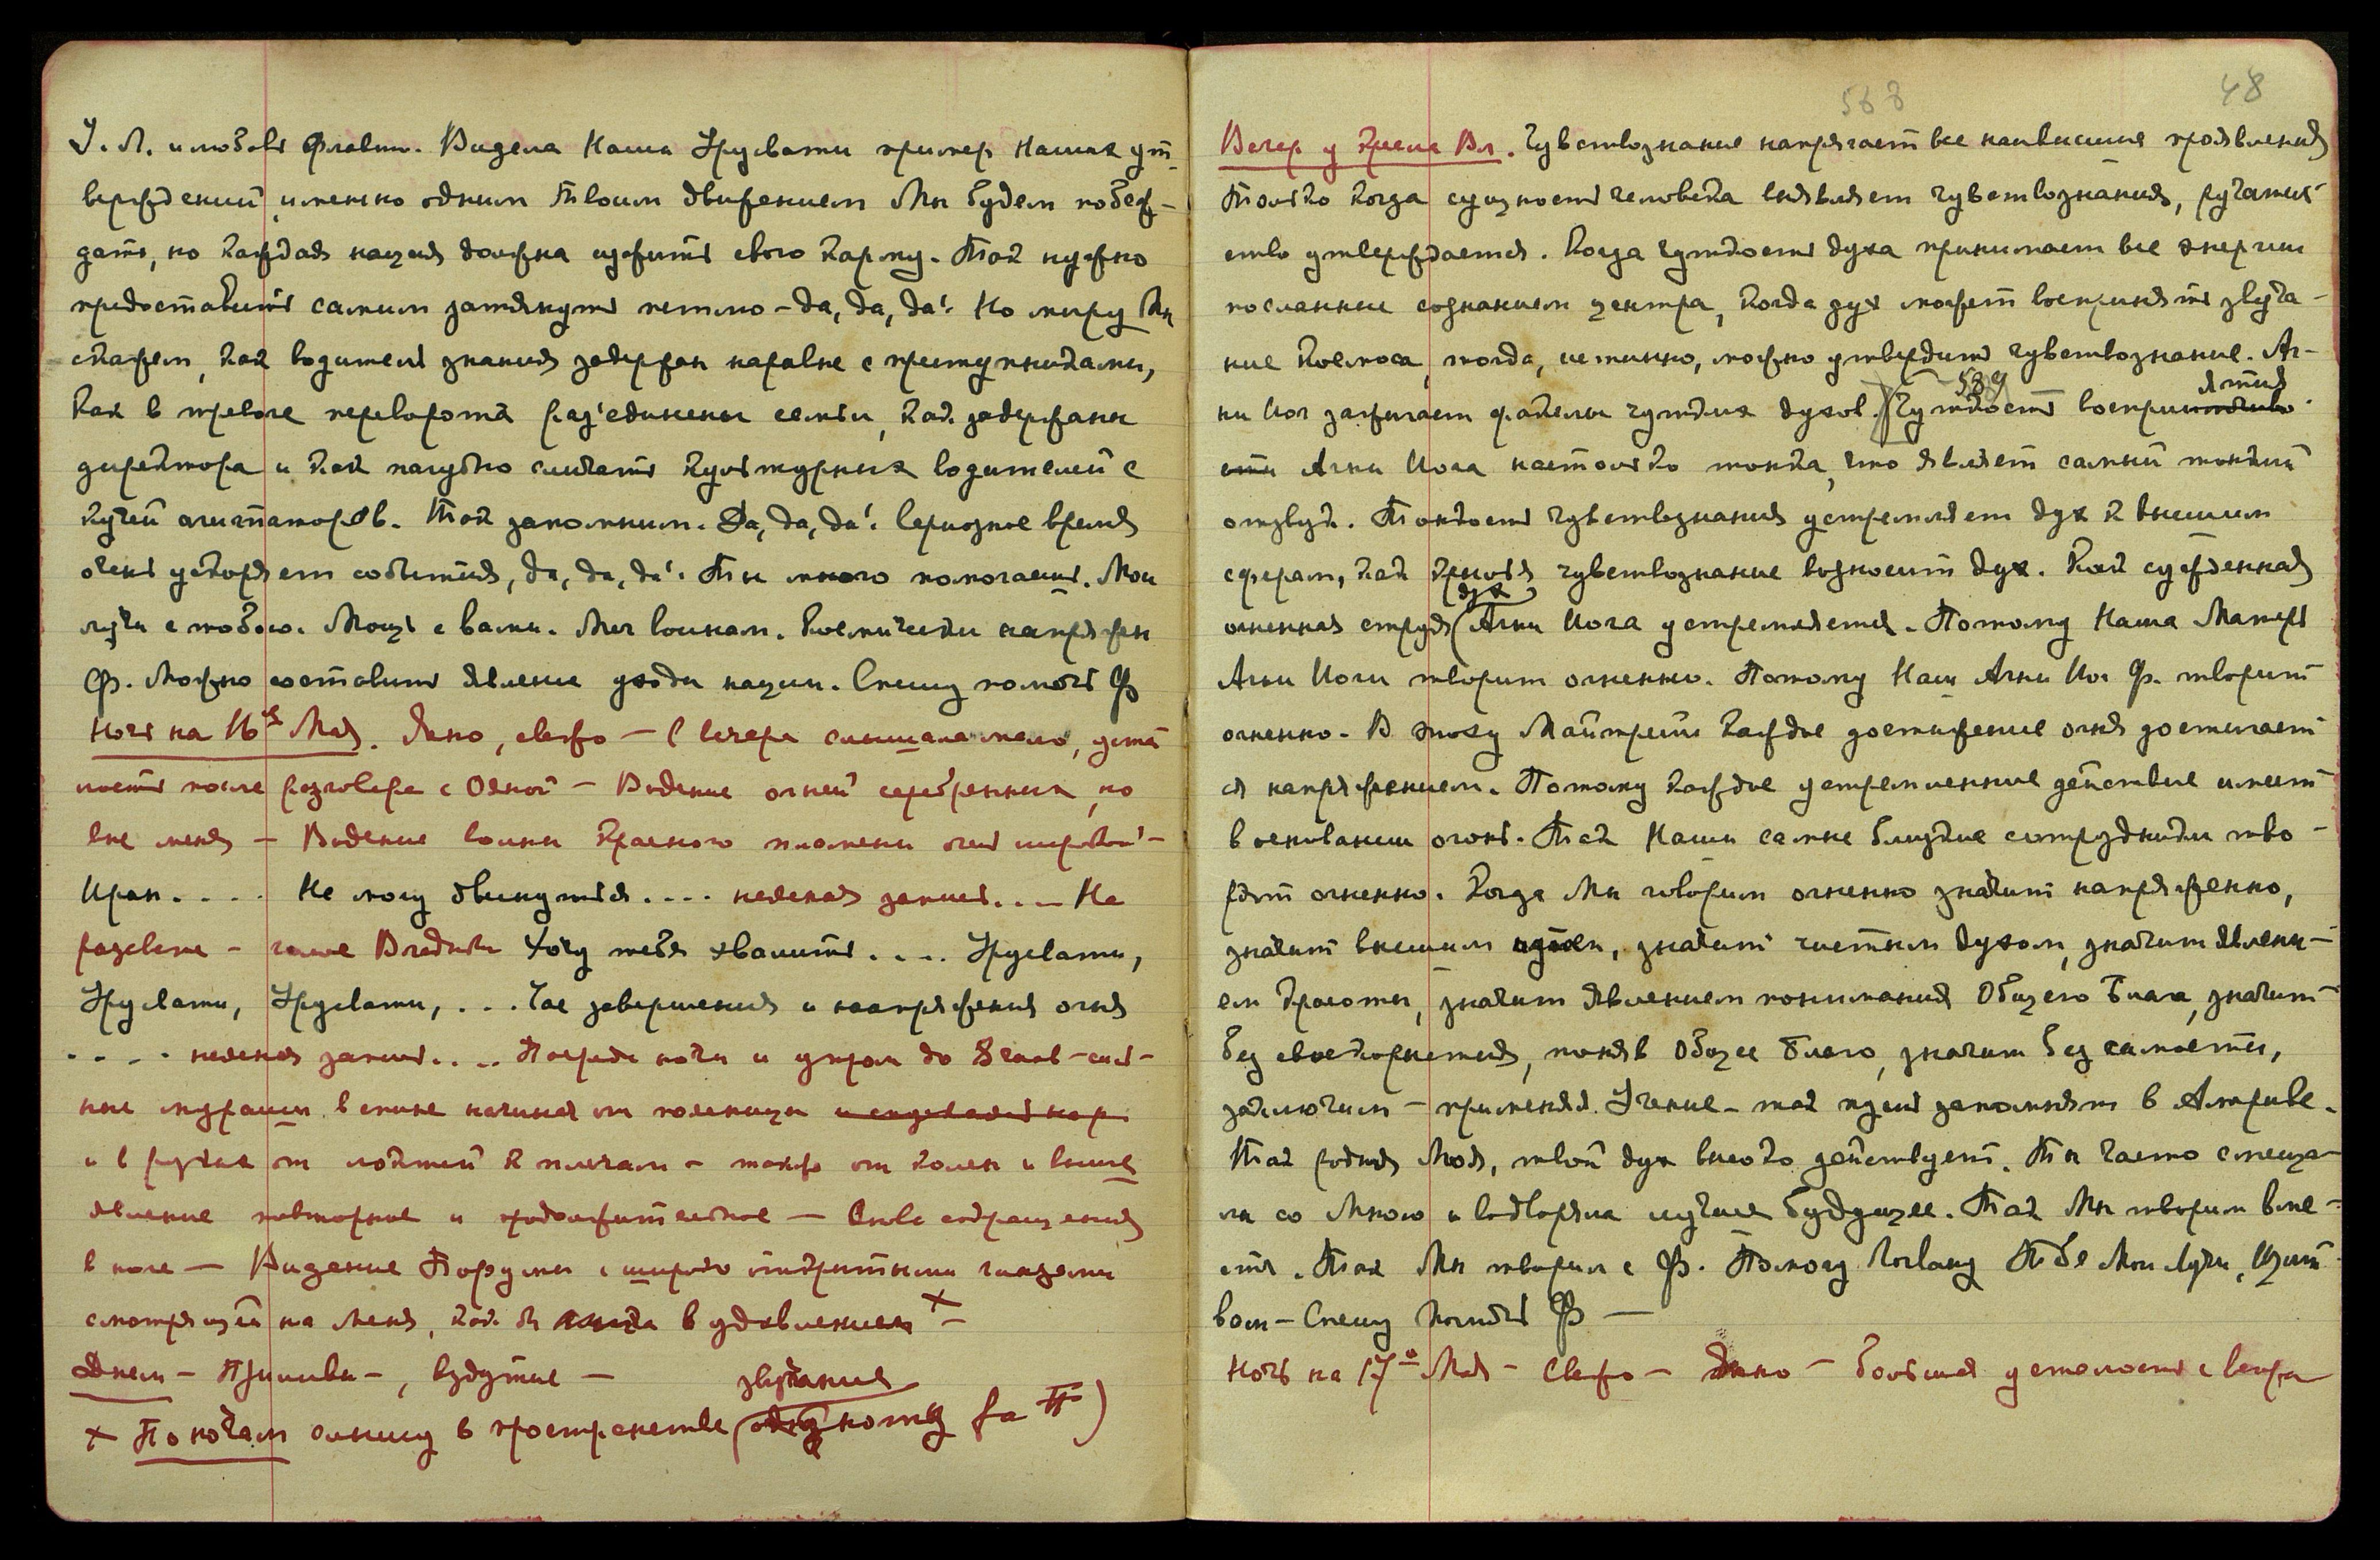 У. Л. и любовь Флавия. Видела Наша Урусвати пример Наших ут-
верждений, именно одним Твоим движением Мы будем побеж-
дать, но каждая нация должна изжить свою карму. Так нужно
предоставить самим затянуть петлю – да, да, да! Но миру Мы
скажем, как водитель знания задержан наравне с преступниками,
как в тревоге переворота раз'единены семьи, как задержаны
директора и как пагубно смешать культурных водителей с
кучей агитаторов. Так запомним. Да, да, да! Серьозное время
очень ускоряет события, да, да, да! Ты много помогаешь. Мои
лучи с тобою. Мощь с вами. Меч воинам. Космически напряжен
Ф. Можно составить явление ухода нации. Спешу помочь Ф
Ночь на 16ое Мая. Ясно, свежо – С вечера слышала мало, уста
лость после разговора с Ояной – Видение огней серебренных, но
вне меня – Видение волны красного пламени очень широкой –
Иран.... Не могу двинуться.... неясная запись.... На
рассвете – голос Владыки Хочу тебя хвалить.... Урусвати,
Урусвати, Урусвати, ... Час завершения и напряжения огня
.... неясная запись.... Посреди ночи и утром до 8 часов – силь-
ные мурашки в спине начиная от поясницы
и в руках от локтей к плечам – также от колен и выше
явление повторное и продолжительное – Снова сокращения
в ноге – Видение Порумы с широко открытыми глазами
смотрящей на меня, как бы в удивлении × –
Днем – Приливы –, вздутие –
звучание
× По ночам слышу в пространстве (одну ноту fa #)
568 48
Вечер у Кресла Вл. Чувствознание напрягает все наивысшие проявления
Только когда сущность человека выявляет чувствознания, ручатель
ство утверждается. Когда чуткость духа принимает все энергии
посланные сознанием центра, когда дух может воспринять звуча-
ние Космоса, тогда, истинно, можно утвердить чувствознание. Аг-
ни Йог зажигает факелы чутких духов. 589 Чуткость восприятия
Агни Йога настолько тонка, что являет самый тонкий
отзвук. Тонкость чувствознания устремляет дух к высшим
сферам, как крылья чувствознание возносит дух. Как сужденная
дух
огненная струя (Агни Йога устремляется. Потому Наша Матерь
Агни Йоги творит огненно. Потому Наш Агни Йог Ф. творит
огненно. В эпоху Майтрейи каждое достижение огня достигает
ся напряжением. Потому каждое устремленние действие имеет
в основании огонь. Так Наши самые близкие сотрудники тво-
рят огненно. Когда Мы говорим огненно значит напряженно,
значит высшим , значит чистым духом, значит явлени-
ем красоты, значит явлением понимания Общего Блага, значит
без своекорыстия, поняв Общее Благо, значит без самости,
заключим – применяя Учение – так пусть запомнят в Америке.
Так родная Моя, твой дух высоко действует. Ты часто
ла со Мною и водворяла лучшее будущее. Так Мы творим вме-
сте. Так Мы творим с Ф. Помогу Логвану Тебе Мои Лучи, Щит
вам – Спешу помочь Ф —
Ночь на 17ое Мая – Свежо – Ясно – большая усталость с вечера